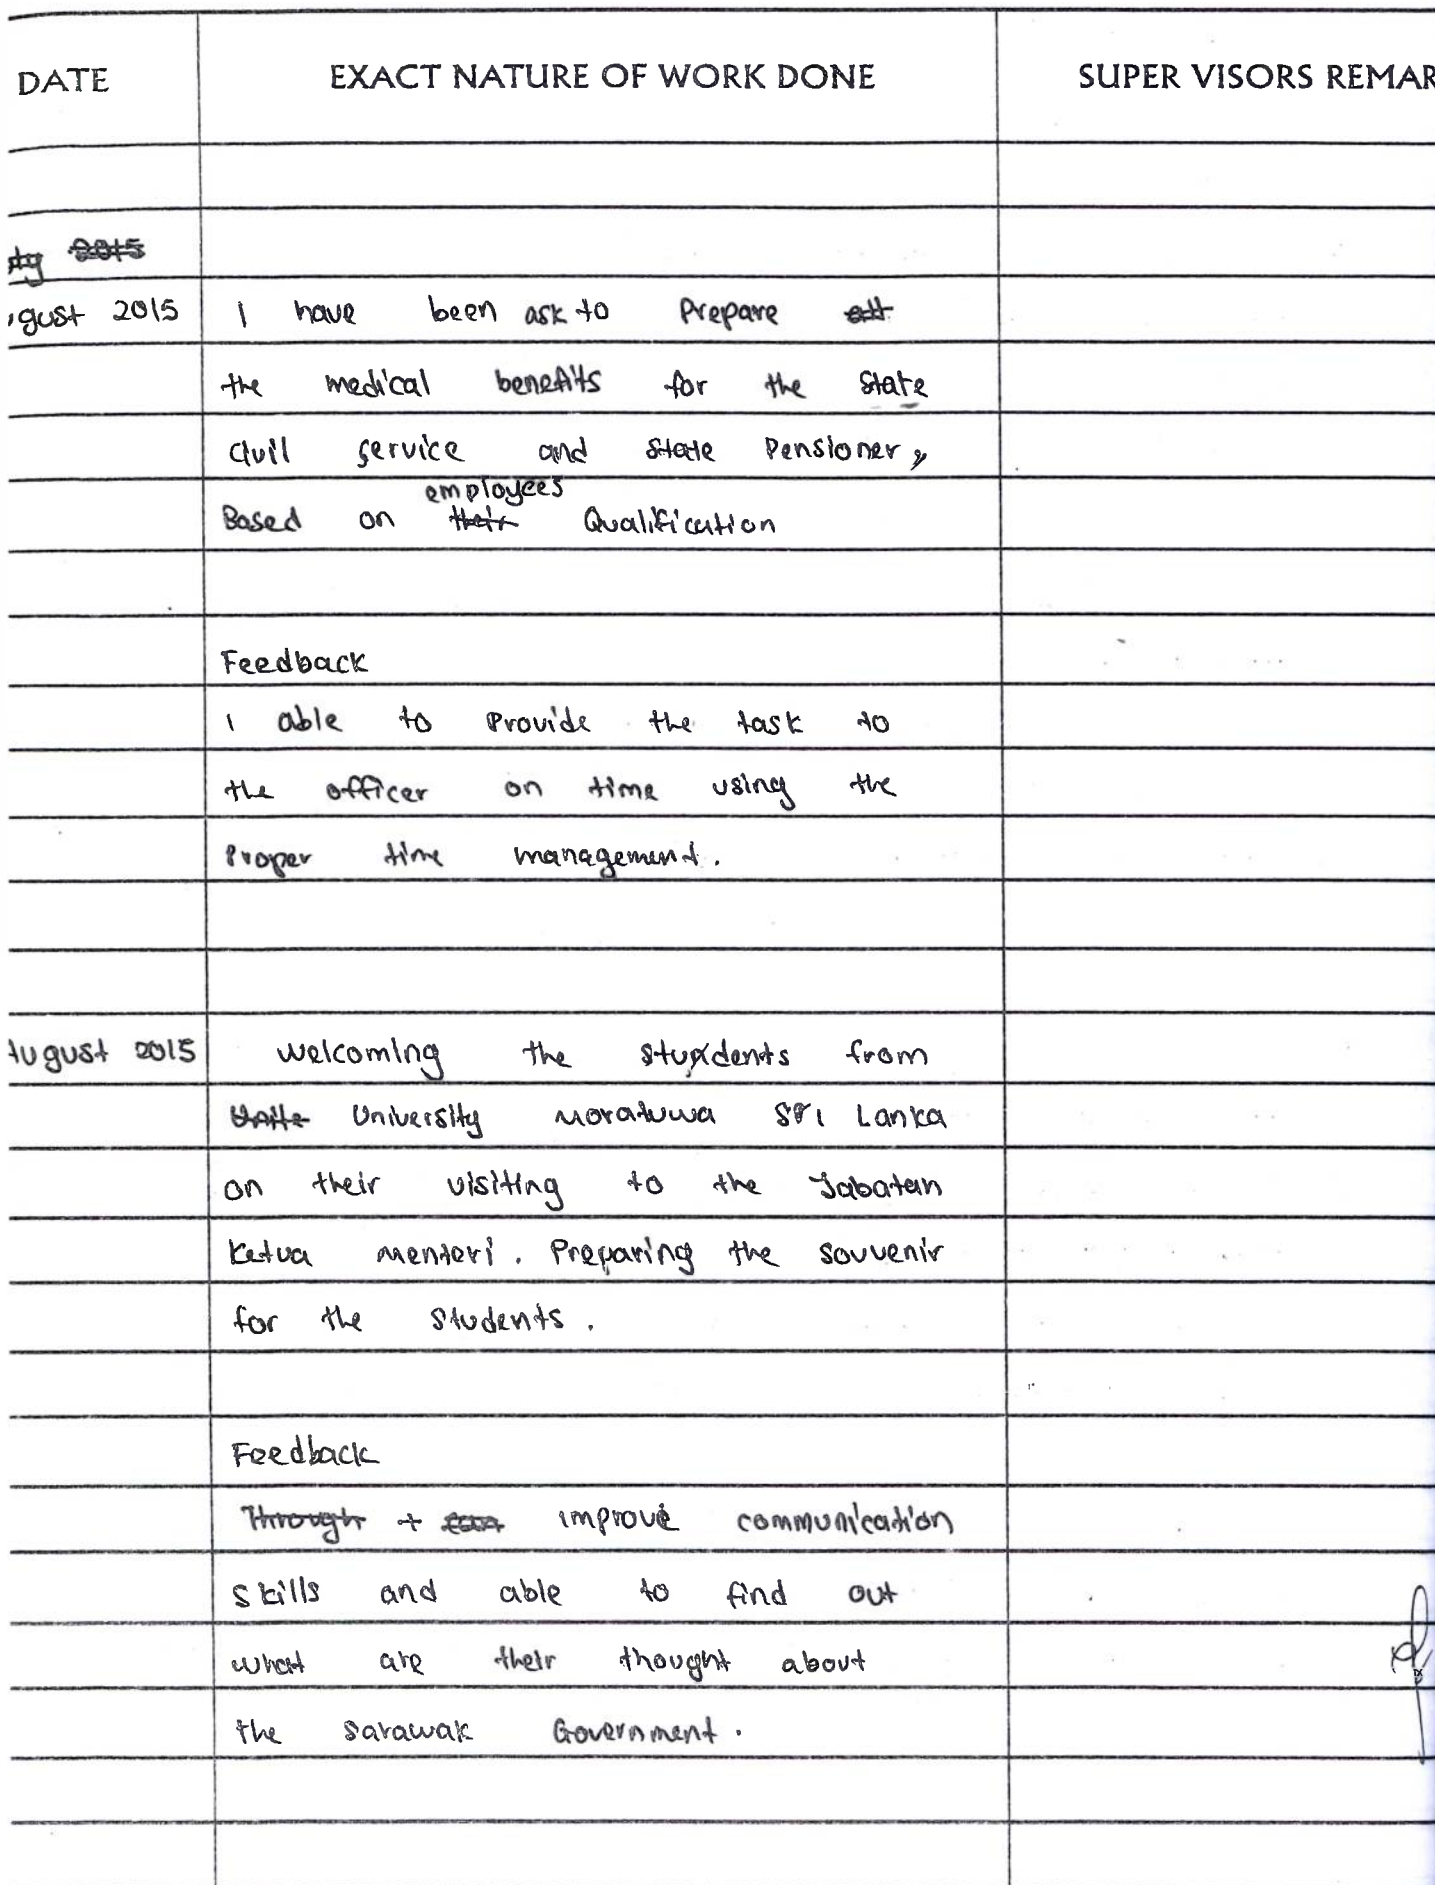 DATE EXACT NATURE OF WORK DONE SUPER VISORS REMAR
2015
gust 2015 I have been ask to Prepare
the medical benefits for the State
Civil service and State Pensioner,
employees
Based on their Qualification
Feedback
I able to Provide the task to
the officer on time using the
Proper time management.
August 2015 Welcoming the students from
University Moratuwa Sri Lanka
on their visiting to the Jabatan
Ketua Menteri. Preparing the souvenir
for the students.
Feedback
Through + improve communication
skills and able to find out
what are their thought about
the Sarawak Government.